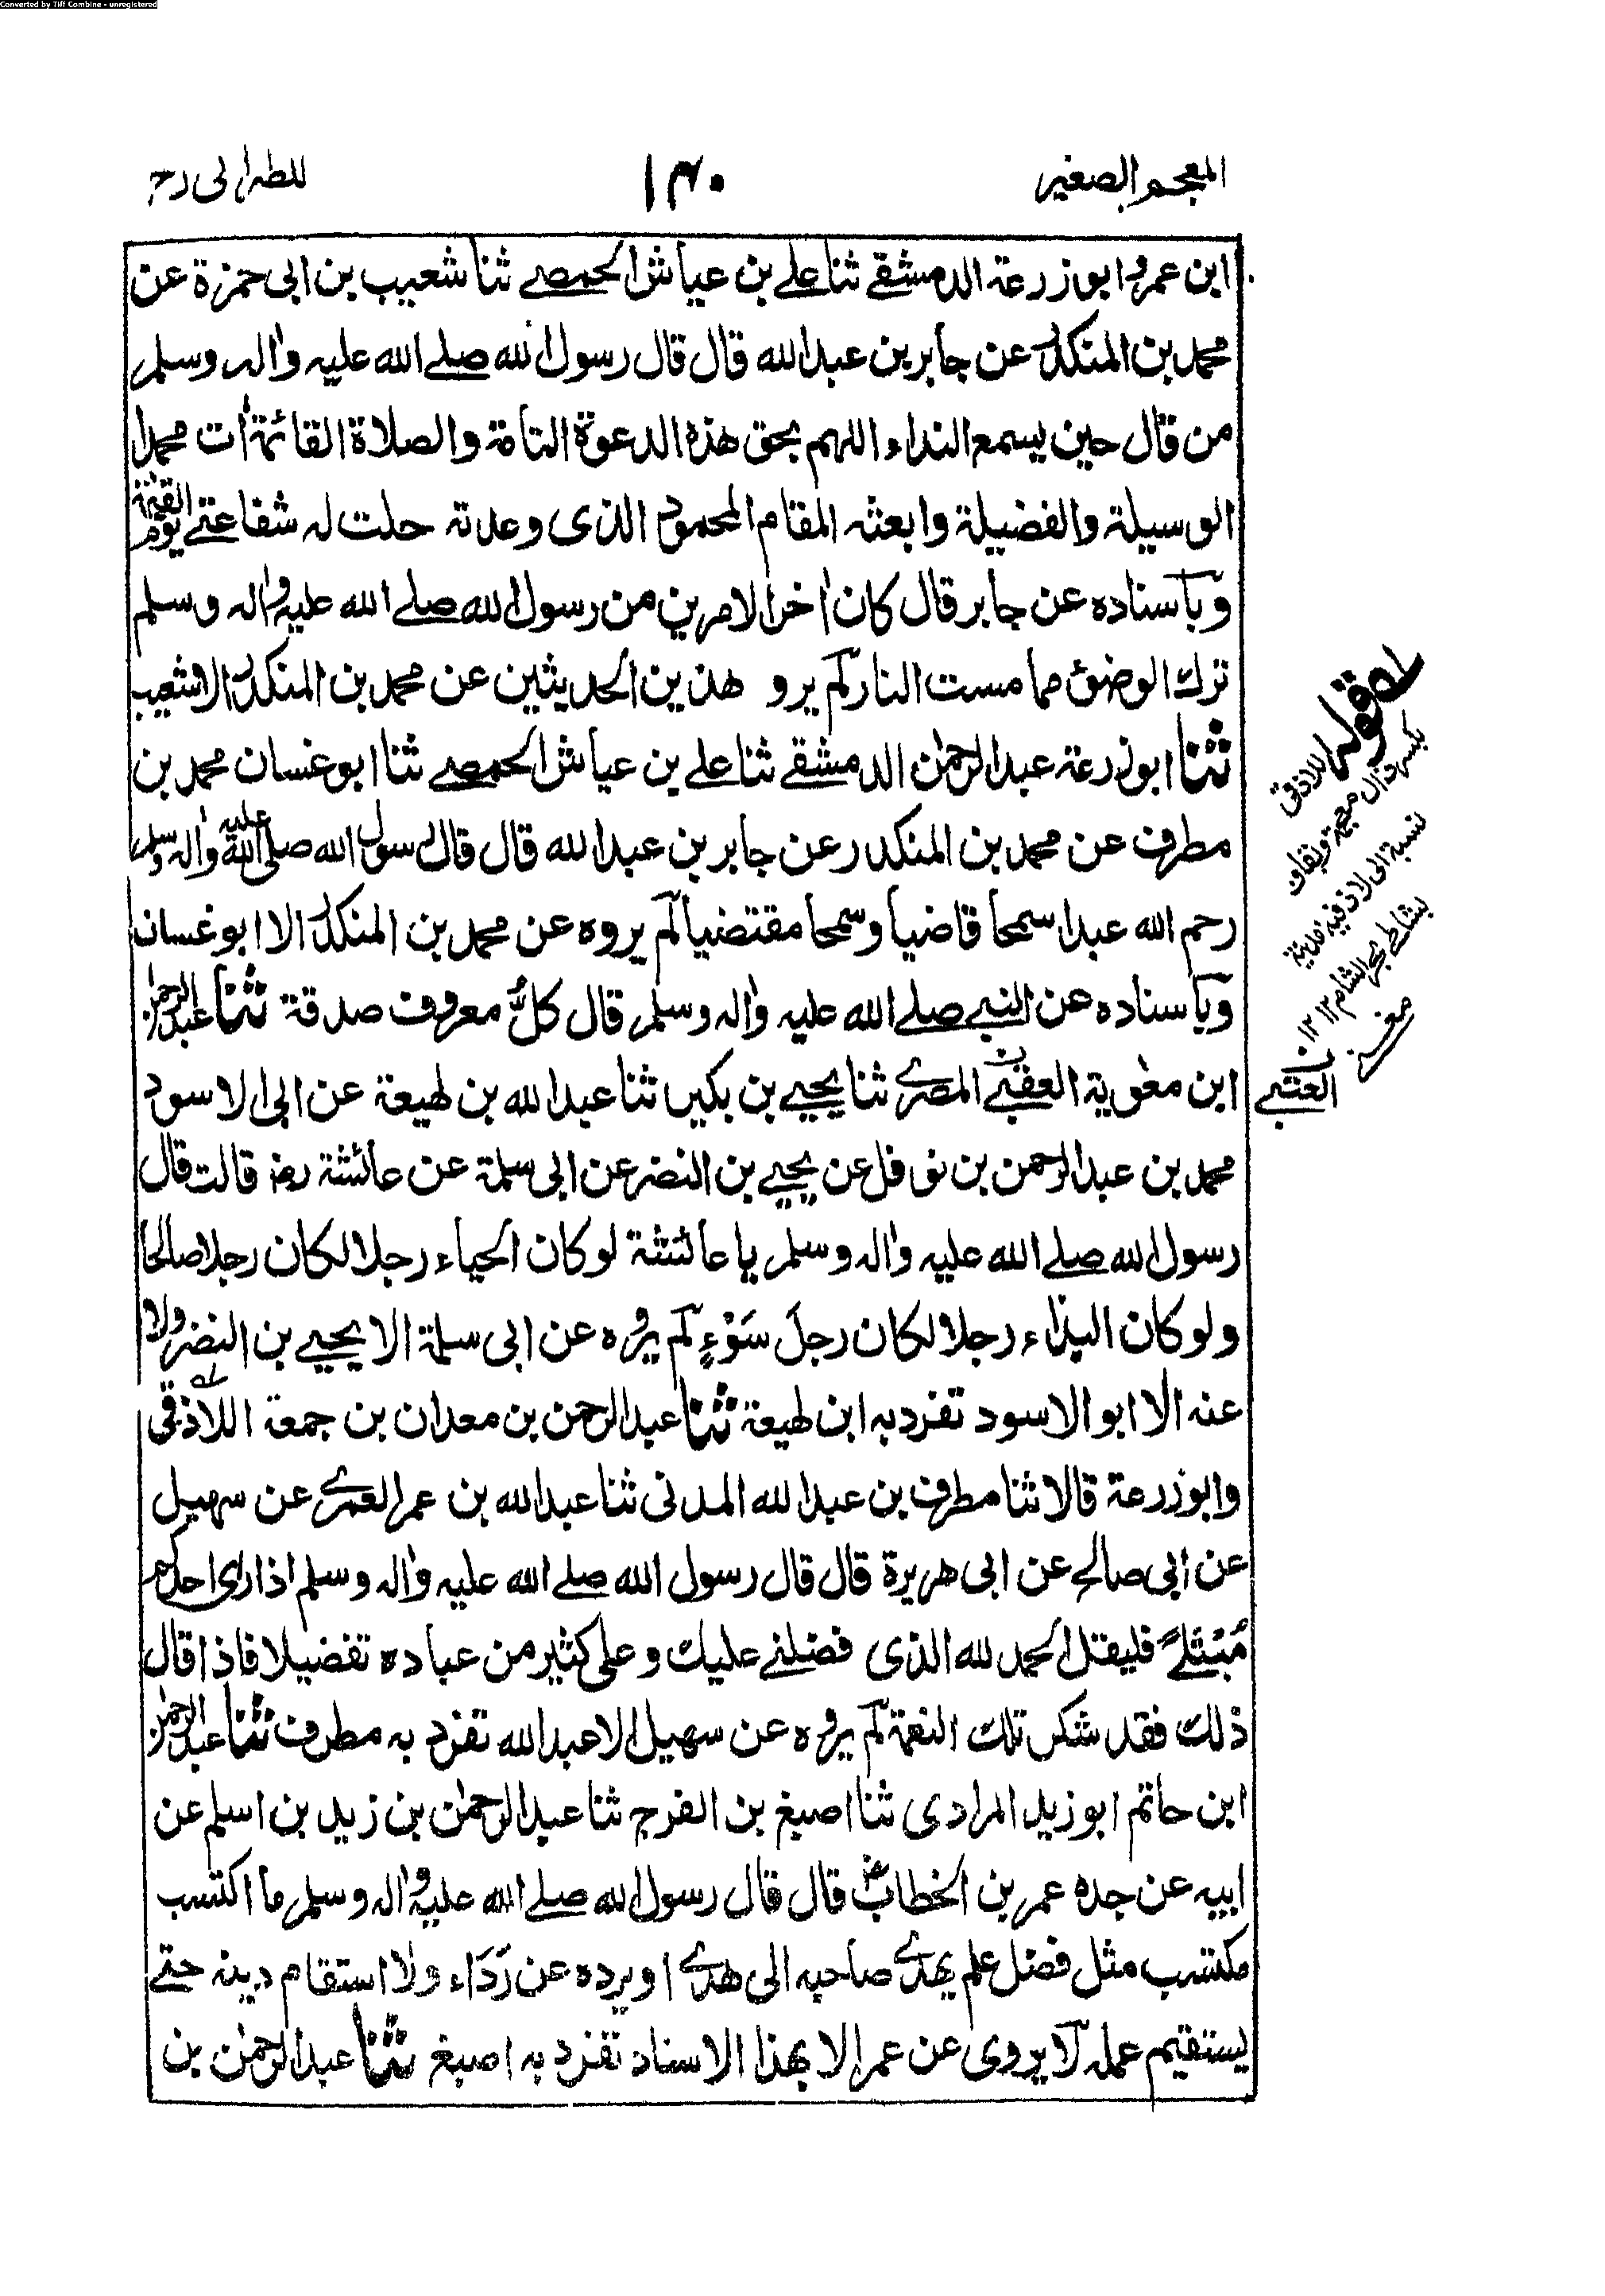 Converted by Tiff Combine - unregistered
المعجم الصغير
١٤٠
للطبرانی رح
ابن عمرو ابو زرعة الدمشقے ثنا علے بن عیاش الحمصے ثنا شعیب بن ابی حمزة عن
محمد بن المنکدر عن جابر بن عبد الله قال قال رسول الله صلے الله علیه واٰله وسلم
من قال حین یسمع النداء اللهم بحق هذه الدعوة التامة والصلاة القائمة اٰت محمدا
الوسیلة والفضیلة وابعثه المقام المحمود الذی وعدته حلت له شفاعتے یوم القیٰمة
وبأسناده عن جابر قال کان اٰخر الامرین من رسول الله صلے الله علیه واٰله وسلم
ترك الوضوء مما مست النار لم یرو هذین الحدیثین عن محمد بن المنکدر الا شعیب
ثنا ابو زرعة عبد الرحمٰن الدمشقے ثنا علے بن عیاش الحمصے ثنا ابو غسان محمد بن
مطرف عن محمد بن المنکدر عن جابر بن عبد الله قال قال رسول الله صلے الله علیه واٰله وسلم
رحم الله عبدا سمحا قاضیا وسمحا مقتضیا لم یروه عن محمد بن المنکدر الا ابو غسان
وبأسناده عن النبے صلے الله علیه واٰله وسلم قال کلُّ معروف صدقة ثنا عبد الرحمٰن
ابن معٰویة العقبے المصرے ثنا یحیے بن بکیر ثنا عبد الله بن لهیعة عن ابی الاسود
محمد بن عبد الرحمن بن نوفل عن یحیے بن النضر عن ابی سلمة عن عائشة رضـ قالت قال
رسول الله صلے الله علیه واٰله وسلم یا عائشة لو کان الحیاء رجلا لکان رجلا صالحا
ولو کان البذاء رجلا لکان رجلَ سَوْءٍ لم یروه عن ابی سلمة الا یحیے بن النضر ولا
عنه الا ابو الاسود تفرد به ابن لهیعة ثنا عبد الرحمن بن معدان بن جمعة اللاذقی
وابو زرعة قالا ثنا مطرف بن عبد الله المدنی ثنا عبد الله بن عمر العمرے عن سهیل
عن ابی صالح عن ابی هریرة قال قال رسول الله صلے الله علیه واٰله وسلم اذا رای احدکم
مُبْتَلًے فلیقل الحمد لله الذی فضلنے علیك وعلی کثیر من عباده تفضیلا فاذا قال
ذلك فقد شکر تلك النعمة لم یروه عن سهیل الا عبد الله تفرد به مطرف ثنا عبد الرحمٰن
ابن حاتم ابو زید المرادی ثنا اصبغ بن الفرج ثنا عبد الرحمٰن بن زید بن اسلم عن
ابیه عن جده عمر بن الخطابؓ قال قال رسول الله صلے الله علیه واٰله وسلم ما اکتسب
مکتسب مثل فضل علم یهدے صاحبه الی هدے او یرده عن رَدَاء ولا استقام دینه حتے
یستقیم عمله لا یروی عن عمر الا بهذا الاسناد تفرد به اصبغ ثنا عبد الرحمٰن بن
له قوله اللاذقی
بکسر ذال معجمة وبقاف
نسبة الی لاذقیة مدینة
بشاطے بحر الشام ١٢
مغنے
العتبے ن